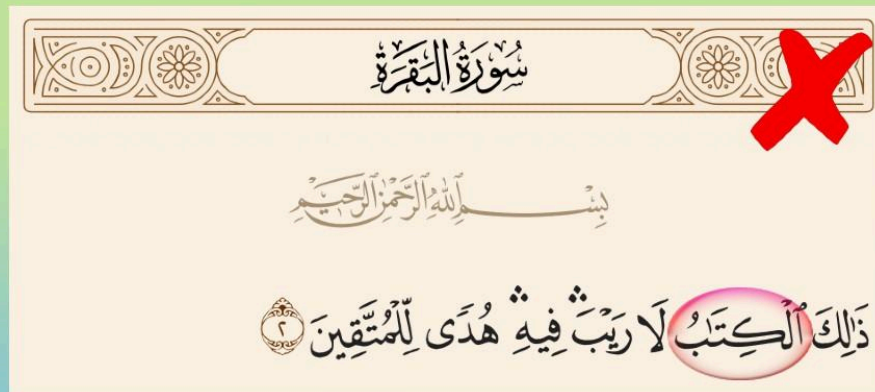 سُورَةُ البَقَرَةِ
بِسْمِ ٱللَّهِ ٱلرَّحْمَٰنِ ٱلرَّحِيمِ
ذَٰلِكَ ٱلْكِتَٰبُ لَا رَيْبَ ۛ فِيهِ ۛ هُدًى لِّلْمُتَّقِينَ ٢